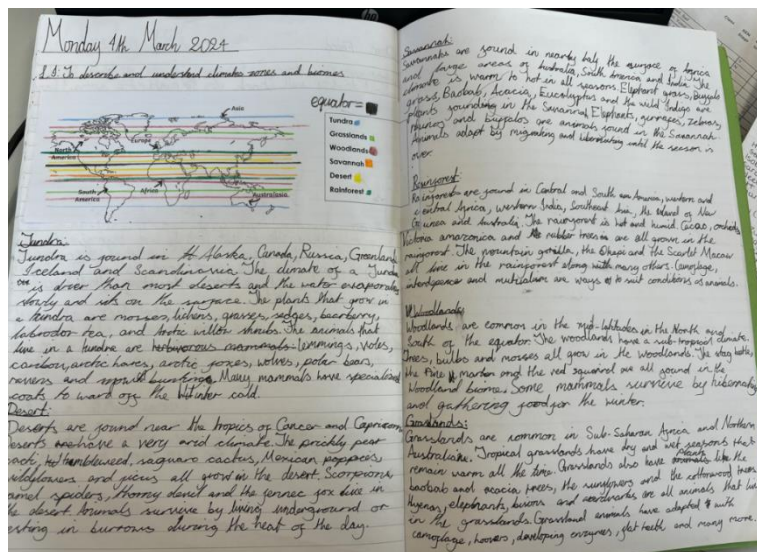 Monday 4th March 2024
L.I: To describe and understand climate zones and biomes
equator=
Asia
Europe
North
America
South
America
Africa
Australasia
Tundra
Grasslands
Woodlands
Savannah
Desert
Rainforest
Tundra:
Tundra is found in Alaska, Canada, Russia, Greenland
Iceland and Scandinavia. The climate of a Tundra
is drier than most deserts and the water evaporates
slowly and sits on the surface. The plants that grow in
a tundra are mosses, lichens, grasses, sedges, bearberry,
labrador tea, and Arctic willow shrubs. The animals that
live in a tundra are herbivorous mammals lemmings, voles,
caribou, arctic hares, arctic foxes, wolves, polar bears,
ravens and snow buntings. Many mammals have specialised
coats to ward off the Winter cold.
Desert:
Deserts are found near the tropics of Cancer and Capricorn
Deserts have a very arid climate. The prickly pear
cacti, tumbleweed, saguaro cactus, Mexican poppies
wildflowers and ficus all grow in the desert. Scorpions,
camel spiders, thorny devil and the fennec fox live in
the desert. Animals survive by living underground or
resting in burrows during the heat of the day.
Savannah:
Savannahs are found in nearby half the surface of Africa
and large areas of Australia, South America and India. The
climate is warm to hot in all seasons. Elephant grass, Buffalo
grass, Baobab, Acacia, Eucalyptus and the wild Indigo are
plants found in the Savanna. Elephants, girrafes, zebras,
rhinos and buffalos are animals found in the Savannah.
Animals adapt by migrating and hibernating until the season is
over.
Rainforest:
Rainforest are found in Central and South America, western and
central Africa, western India, Southeast Asia, the island of New
Guinea and Australia. The rainforest is hot and humid. Cacao, orchids
Victoria amazonica and rubber trees are all grown in the
rainforest. The mountain gorilla, the Okapi and the Scarlet Macaw
all live in the rainforest along with many others. Camoflage,
interdepence and mutilalism are ways to suit conditions as animals.
Woodlands
Woodlands are common in the mid-latitudes in the North and
South of the equator. The woodlands have a sub-tropical climate.
Trees, bulbs and mosses all grow in the woodlands. The stag beetle,
the Pine marten and the red squirrel are all found in the
Woodland biome. Some mammals survive by hibernating
and gathering food for the winter.
Grasslands:
Grasslands are common in Sub-Saharan Africa and Northern
Australia. Tropical grasslands have dry and wet seasons that
remain warm all the time. Grasslands also have plants like the
baobab and acacia trees, the sunflowers and the cottonwood trees.
Hyenas, elephants, bisons and aardvarks are all animals that live
in the grasslands. Grassland animals have adapted with
camoflage, hooves, developing enzymes, flat teeth and many more.